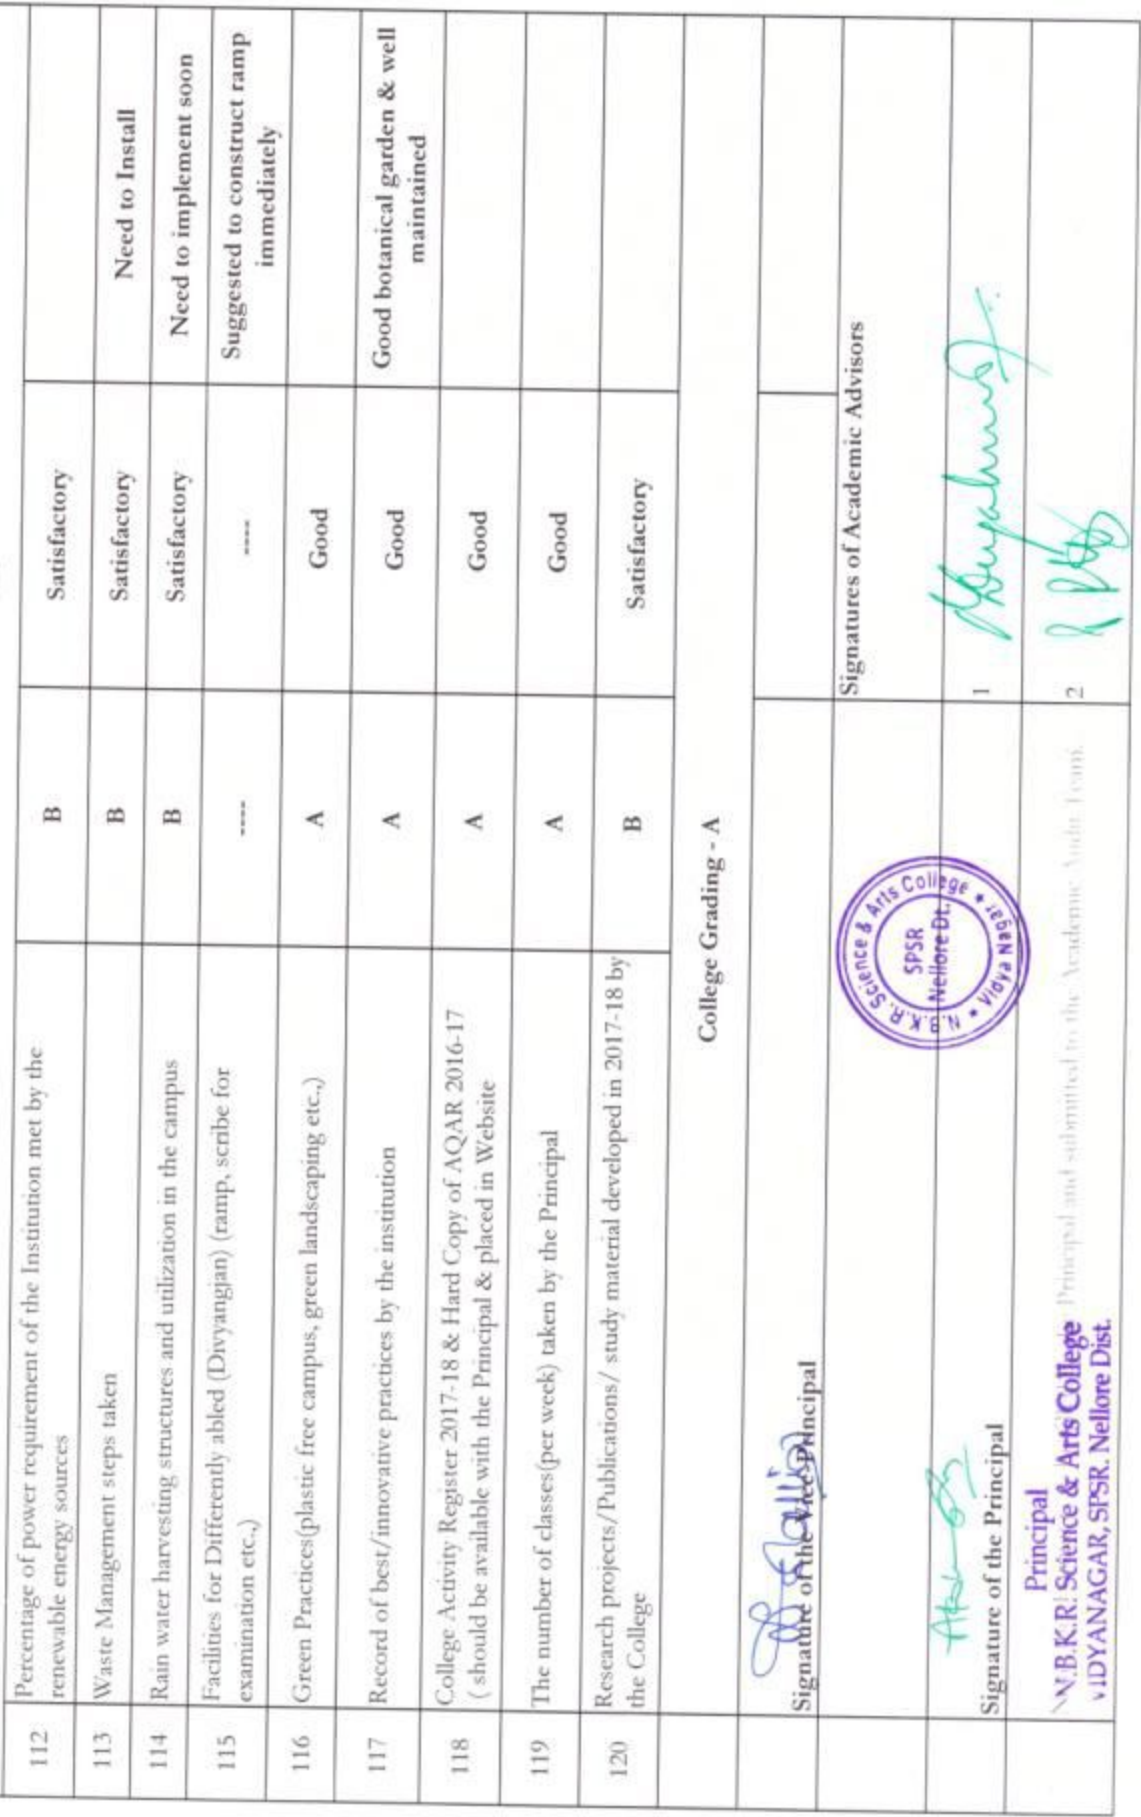 112 Percentage of power requirement of the Institution met by the B Satisfactory
renewable energy sources
113 Waste Management steps taken B Satisfactory Need to Install
114 Rain water harvesting structures and utilization in the campus B Satisfactory Need to implement soon
115 Facilities for Differently abled (Divyangjan) (ramp, scribe for ---- ---- Suggested to construct ramp
examination etc.,) immediately
116 Green Practices(plastic free campus, green landscaping etc.,) A Good
117 Record of best/innovative practices by the institution A Good Good botanical garden & well
maintained
118 College Activity Register 2017-18 & Hard Copy of AQAR 2016-17 A Good
( should be available with the Principal & placed in Website
119 The number of classes(per week) taken by the Principal A Good
120 Research projects/Publications/ study material developed in 2017-18 by B Satisfactory
the College
College Grading - A
Signature of the Vice-Principal
Signatures of Academic Advisors
N.B.K.R. Science & Arts College
SPSR
Nellore Dt.
* Vidya Nagar *
Signature of the Principal
1
2
Principal
N.B.K.R. Science & Arts College
VIDYANAGAR, SPSR. Nellore Dist.
Principal and submitted to the Academic Audit Team.